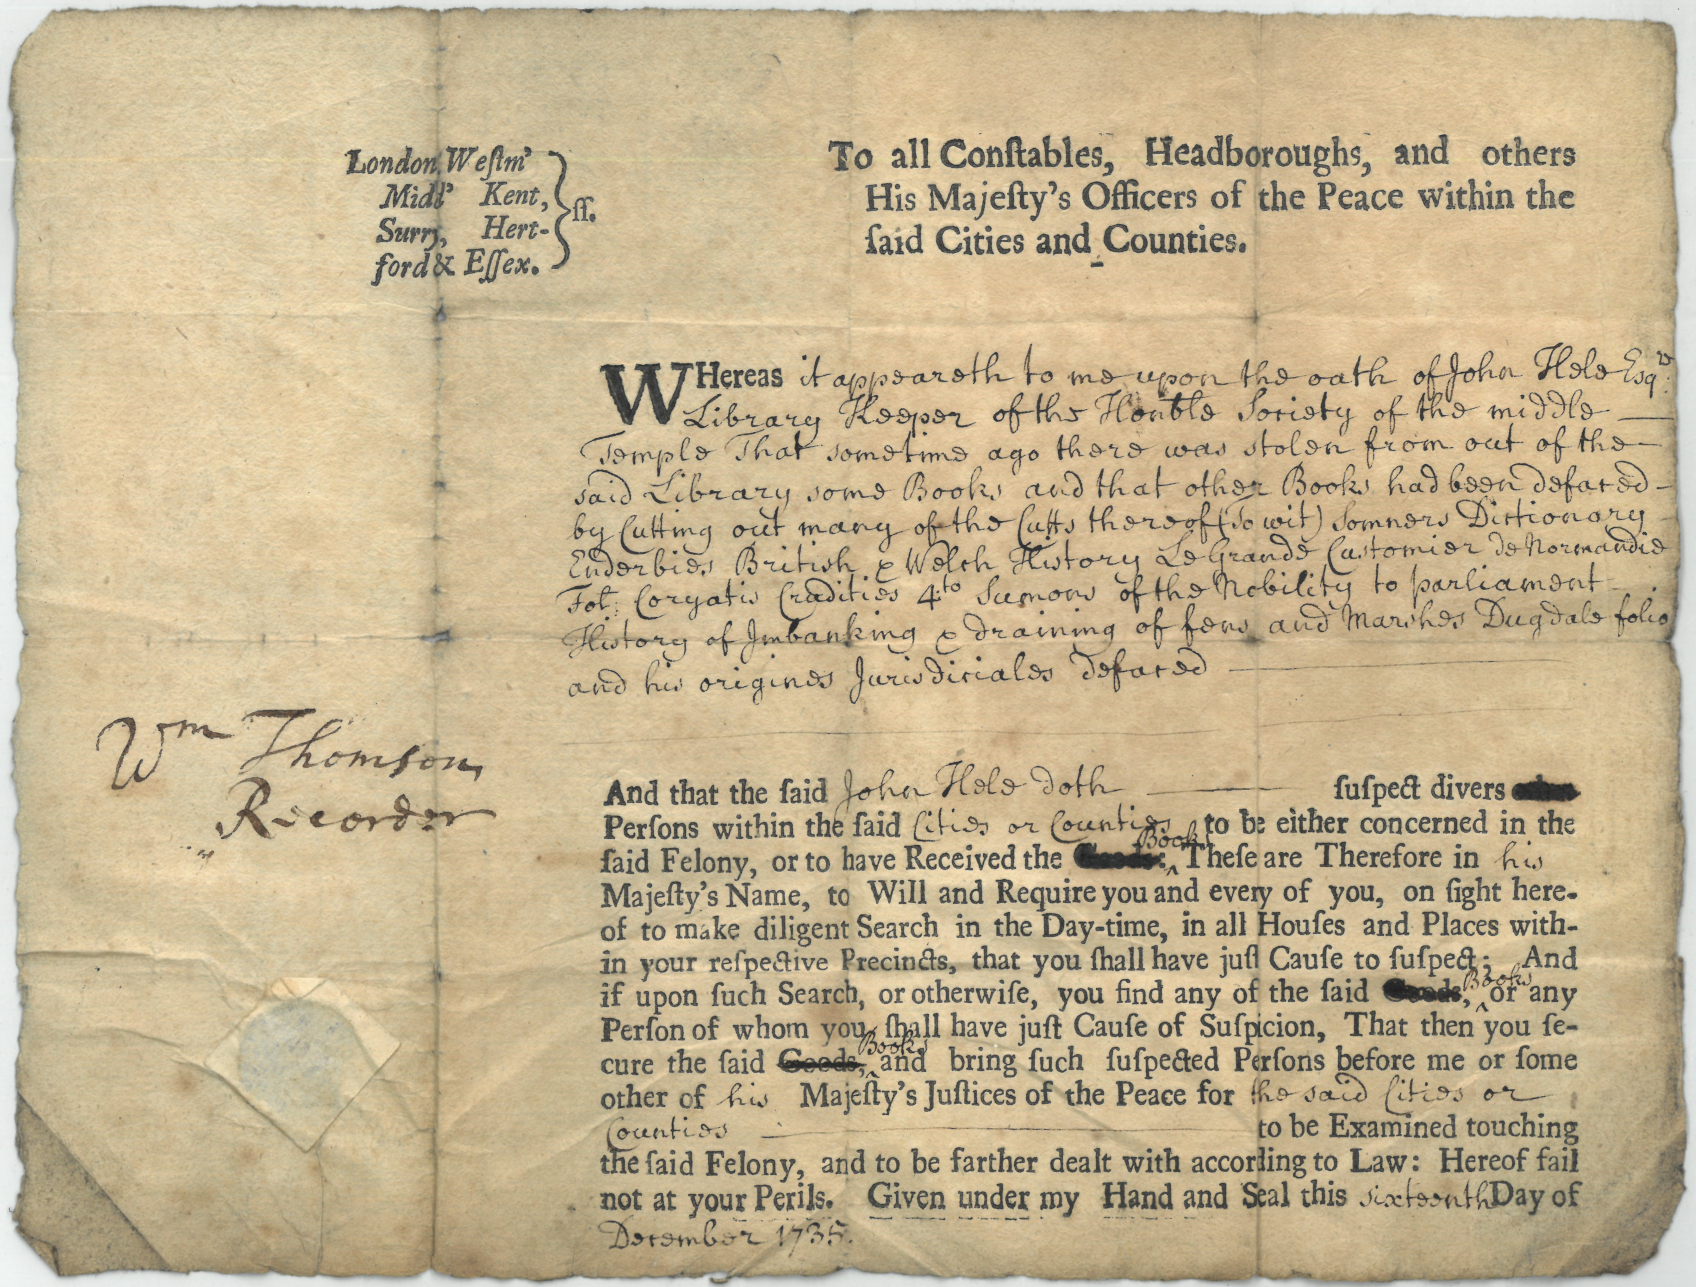 London, Weſtmʳ
Midd' Kent,
Surry, Hert-
ford & Eſſex.
ſſ.
To all Conſtables, Headboroughs, and others
His Majeſty's Officers of the Peace within the
ſaid Cities and Counties.
WHereas it appeareth to me upon the oath of John Hele Esqʳ.
Library Keeper of the Honble Society of the middle
Temple That sometime ago there was stolen from out of the
said Library some Books and that other Books had been defaced
by Cutting out many of the Cutts thereof (to wit) Somners Dictionary
Enderbies British & Welch History Le Grande Customier de Normandie
Fol: Coryatis Crudities 4to Sumons of the Nobility to parliament
History of Imbanking & draining of fens and Marshes Dugdale folio
and his origines Jurisdiciales defaced
Wm Thomson
Recorder
And that the ſaid John Hele doth ſuſpect divers
Perſons within the ſaid Cities or Counties to be either concerned in the
ſaid Felony, or to have Received the Goods: Books Theſe are Therefore in his
Majeſty's Name, to Will and Require you and every of you, on ſight here-
of to make diligent Search in the Day-time, in all Houſes and Places with-
in your reſpective Precincts, that you ſhall have juſt Cauſe to ſuſpect; And
if upon ſuch Search, or otherwiſe, you find any of the ſaid Goods, Books or any
Perſon of whom you ſhall have juſt Cauſe of Suſpicion, That then you ſe-
cure the ſaid Goods, Books and bring ſuch ſuſpected Perſons before me or ſome
other of his Majeſty's Juſtices of the Peace for the said Cities or
Counties to be Examined touching
the ſaid Felony, and to be farther dealt with according to Law: Hereof fail
not at your Perils. Given under my Hand and Seal this sixteenth Day of
December 1735.